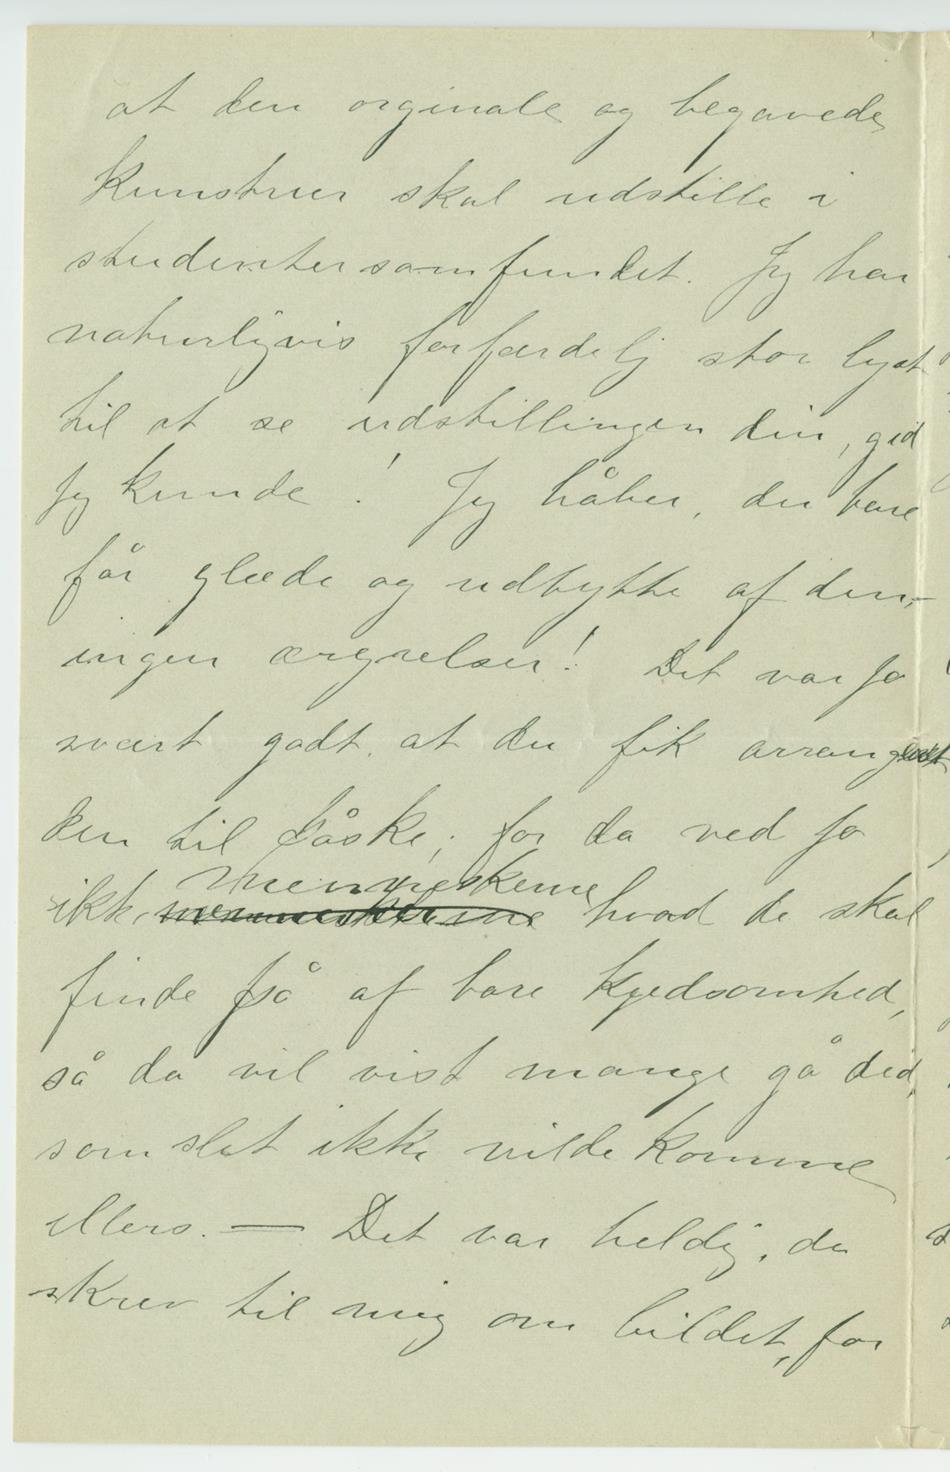 at den orginale og begavede
kunstner skal udstille i
studentersamfundet. Jeg har
naturligvis forfærdelig stor lyst
til at se udstillingen din, gid
jeg kunde! Jeg håber, du bare
får glæde og udbytte af den,—
ingen ærgrelser! Det var jo
svært godt, at du fik arrangeret
den til påske; for da ved jo
menneskene
ikke menneskerne hvad de skal
finde på af bare kjedsomhed,
så da vil vist mange gå did,
som slet ikke vilde komme
ellers. — Det var heldig, du
skrev til mig om bildet, for